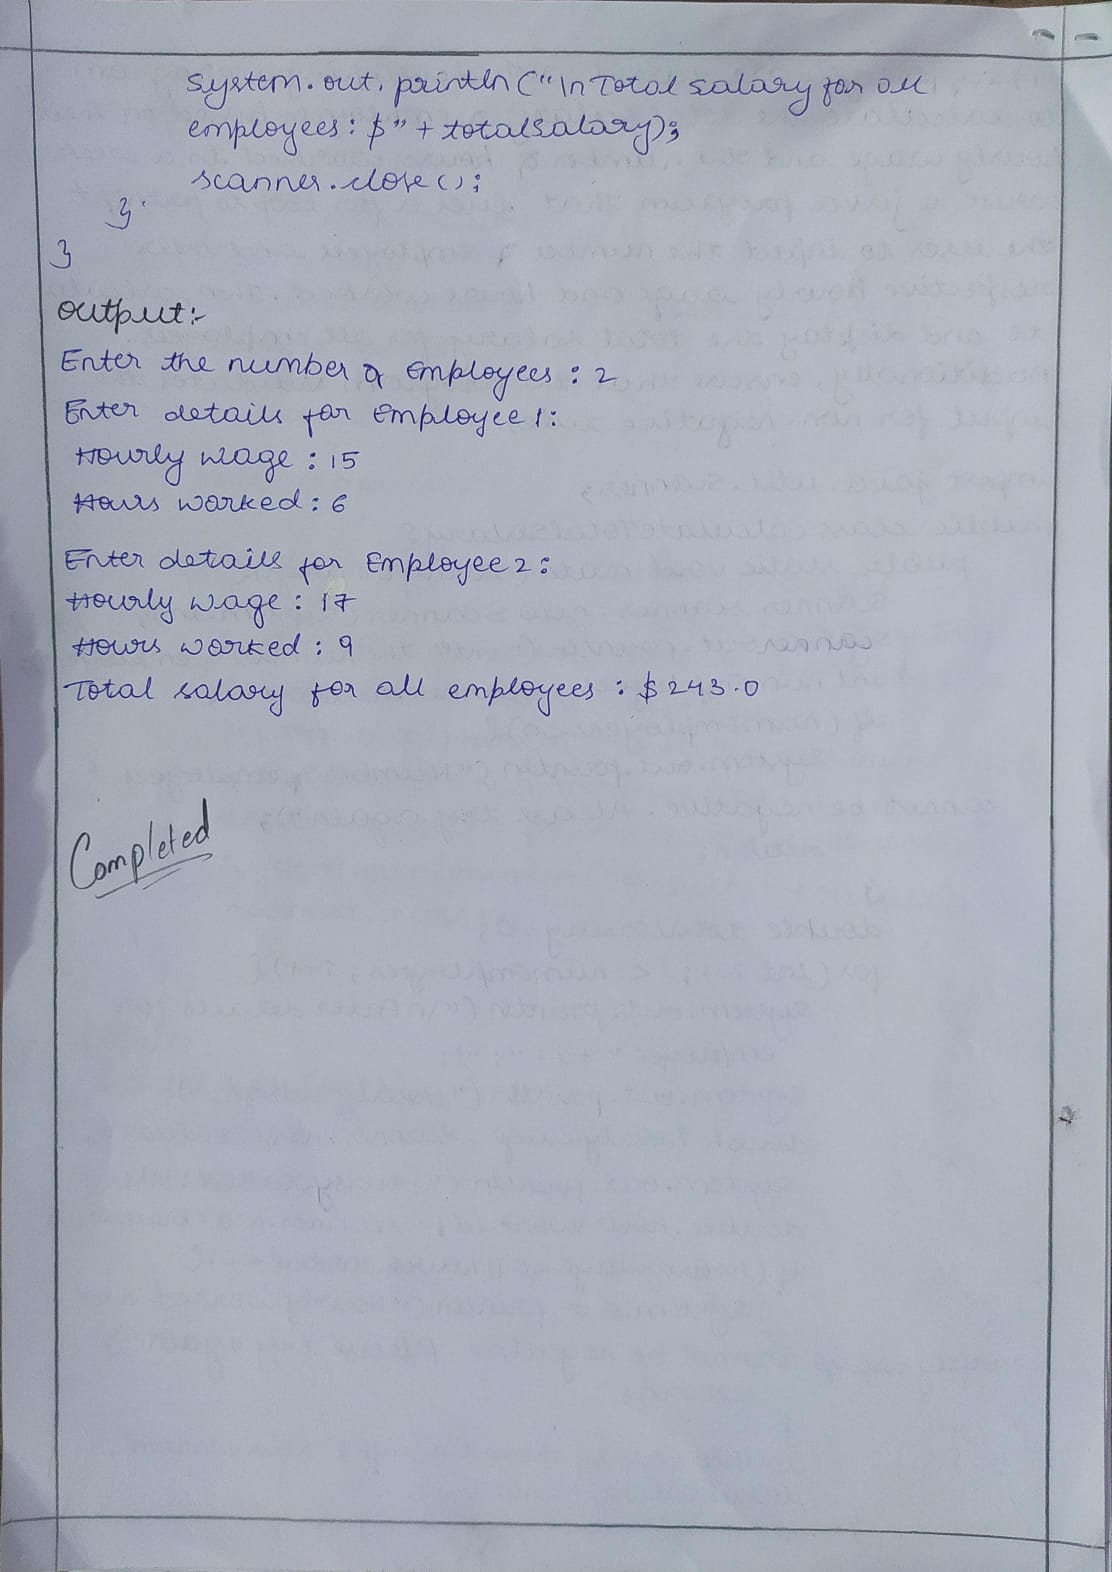 System.out.println("\n Total salary for all
employees: $" + totalsalary);
scanner.close();
}
}
output:-
Enter the number of Employees : 2
Enter details for Employee 1:
Hourly wage : 15
Hours worked : 6
Enter details for Employee 2:
Hourly wage : 17
Hours worked : 9
Total salary for all employees : $ 243.0
Completed